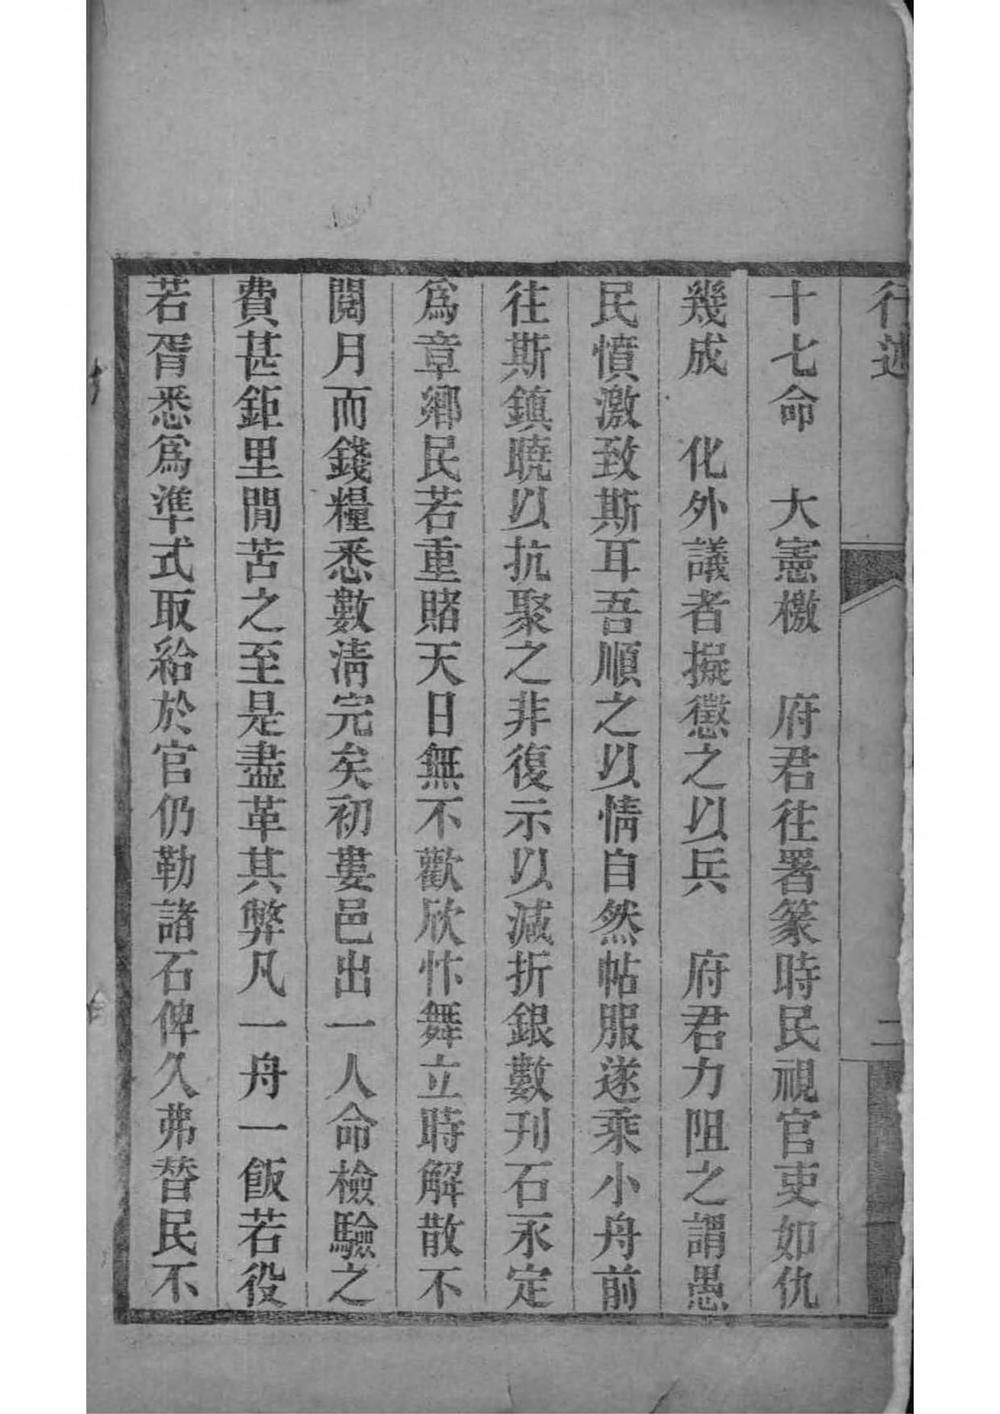 行述 二
十七命 大憲檄 府君往署篆時民視官吏如仇
幾成 化外議者擬懲之以兵 府君力阻之謂愚
民憤激致斯耳吾順之以情自然帖服遂乘小舟前
往斯鎮曉以抗聚之非復示以減折銀數刋石永定
爲章鄉民若重賭天日無不歡欣忭舞立時解散不
閱月而錢糧悉數清完矣初婁邑出一人命檢驗之
費甚鉅里閭苦之至是盡革其弊凡一舟一飯若役
若胥悉爲準式取給於官仍勒諸石俾久弗替民不